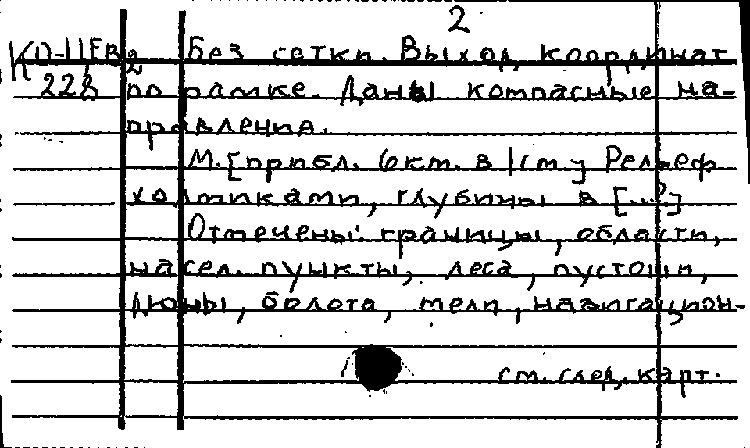 2
Без сетки. Выход координат
по рамке. Даны компасные на-
правления.
М. [прибл. 6км. в 1см.] Рельеф
холмиками, глубины в [...?]
Отмечены: границы, области,
насел. пункты, леса, пустоши,
дюны, болота, мели, навигацион-
см. след. карт.